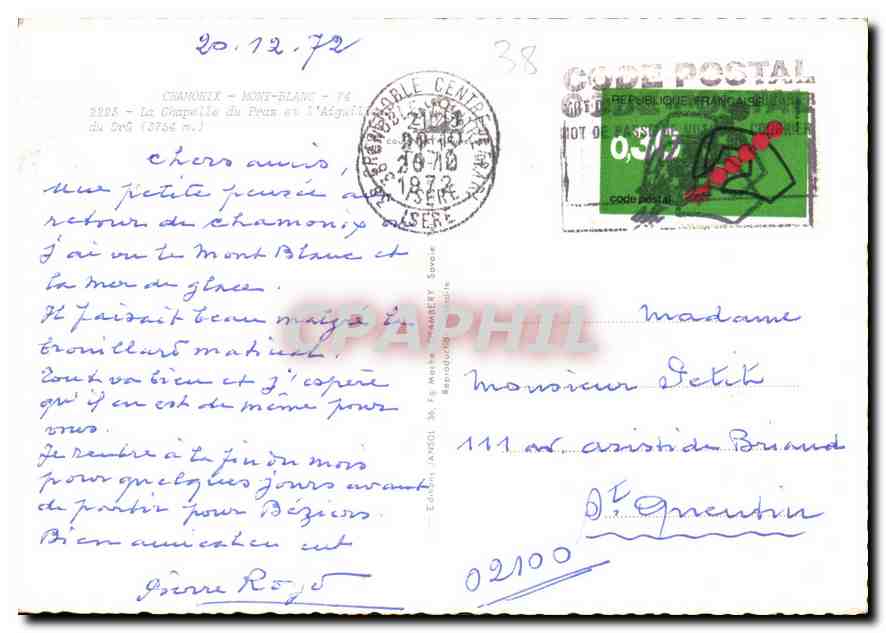 20.12.72
38
CHAMONIX - MONT-BLANC - 74
2225 - La Chapelle du Praz et l'Aiguille
du Drû (3754 m.)
chers amis,
une petite pensée au
retour de chamonix où
j'ai vu le Mont Blanc et
la mer de glace.
Il faisait beau malgré le
brouillard matinal.
Tout va bien et j'espère
qu'il en est de même pour
vous.
Je rentre à la fin du mois
pour quelques jours avant
de partir pour Béziers.
Bien amicalement
Pierre
GRENOBLE CENTRE
1972
ISERE
CODE POSTAL
MOT DE PASSE DE VOTRE COURRIER
REPUBLIQUE FRANCAISE
0,30
code postal
Editions JANSOL 36, Fg Mache CHAMBERY Savoie
Reproduction interdite
CPAPHIL
Madame
Monsieur Petit
111 av. aristide Briand
St. Quentin
02100